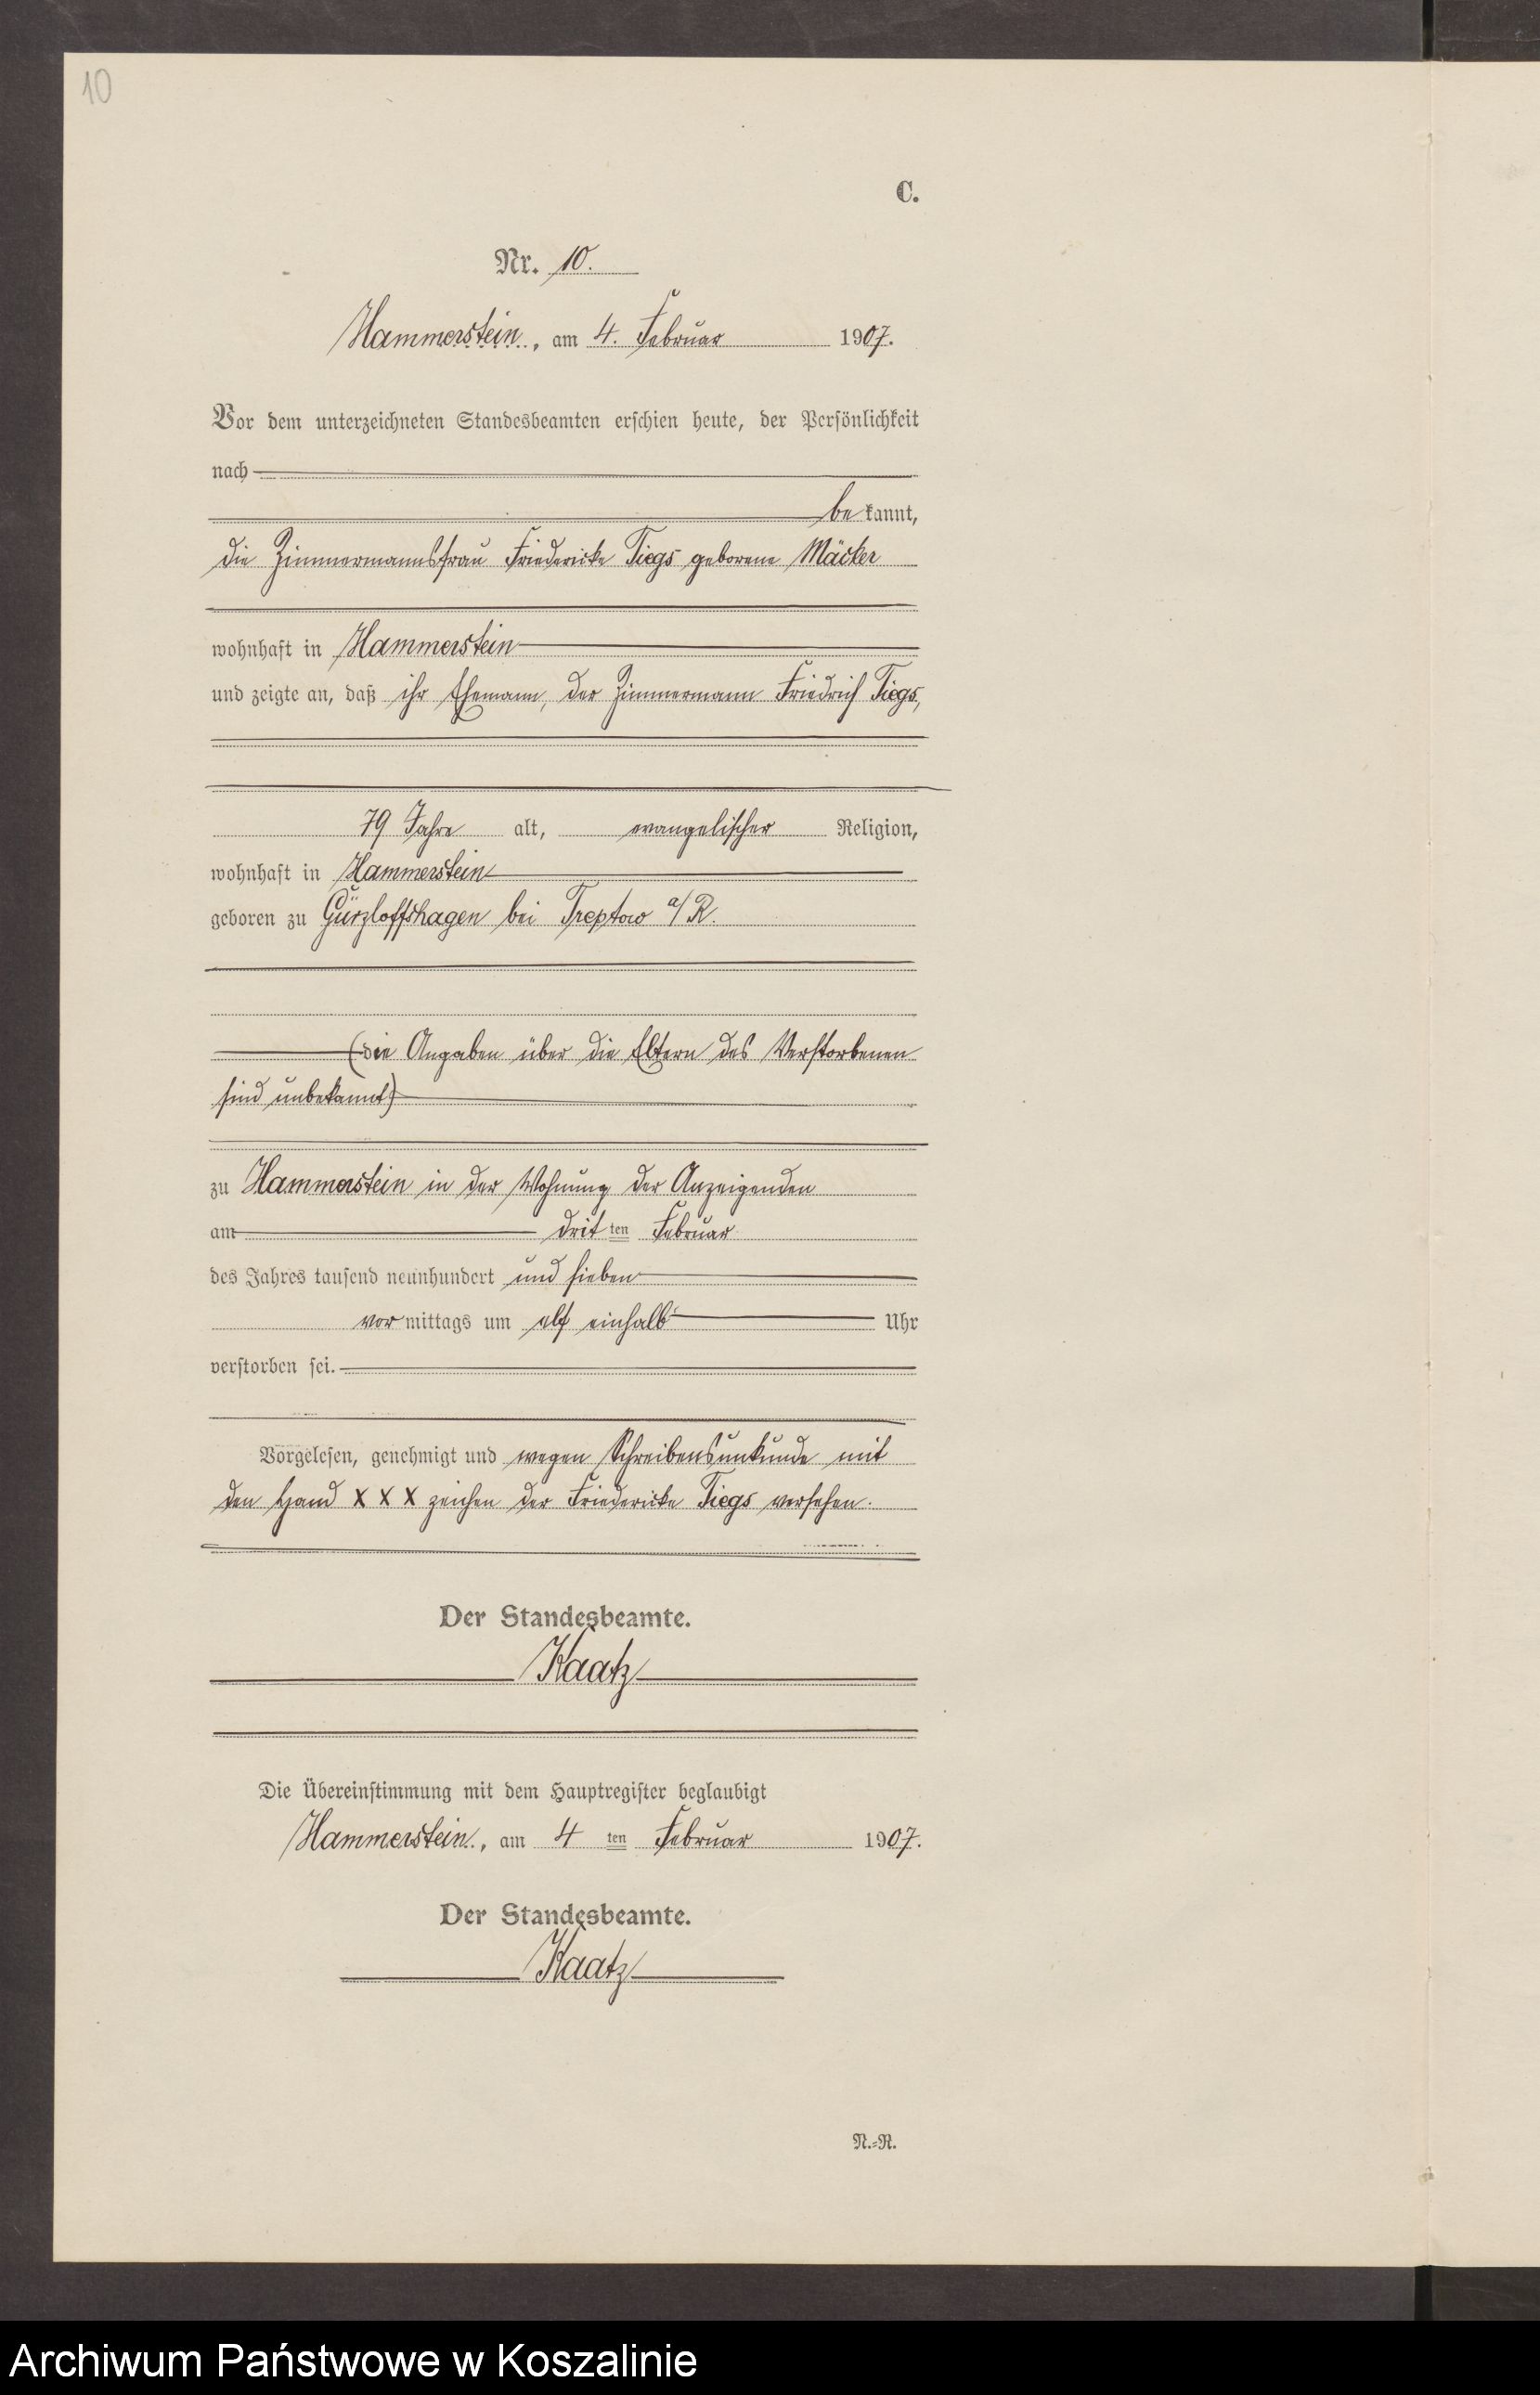 10
C.
Nr. 10.
Hammerstein, am 4. Februar 1907.
Vor dem unterzeichneten Standesbeamten erschien heute, der Persönlichkeit
nach
be kannt,
die Zimmermannsfrau Friedericke Tiegs geborene Mäcker
wohnhaft in Hammerstein
und zeigte an, daß ihr Ehemann, der Zimmermann Friedrich Tiegs,
79 Jahre alt, evangelischer Religion,
wohnhaft in Hammerstein
geboren zu Gürzloffshagen bei Treptow a/R.
(die Angaben über die Eltern des Verstorbenen
sind unbekannt)
zu Hammerstein in der Wohnung der Anzeigenden
am drit ten Februar
des Jahres tausend neunhundert und sieben
vor mittags um elf einhalb Uhr
verstorben sei.
Vorgelesen, genehmigt und wegen Schreibensunkunde mit
den Hand X X X zeichen der Friedericke Tiegs versehen.
Der Standesbeamte.
Kaatz
Die Übereinstimmung mit dem Hauptregister beglaubigt
Hammerstein, am 4 ten Februar 1907.
Der Standesbeamte.
Kaatz
N.-R.
Archiwum Państwowe w Koszalinie